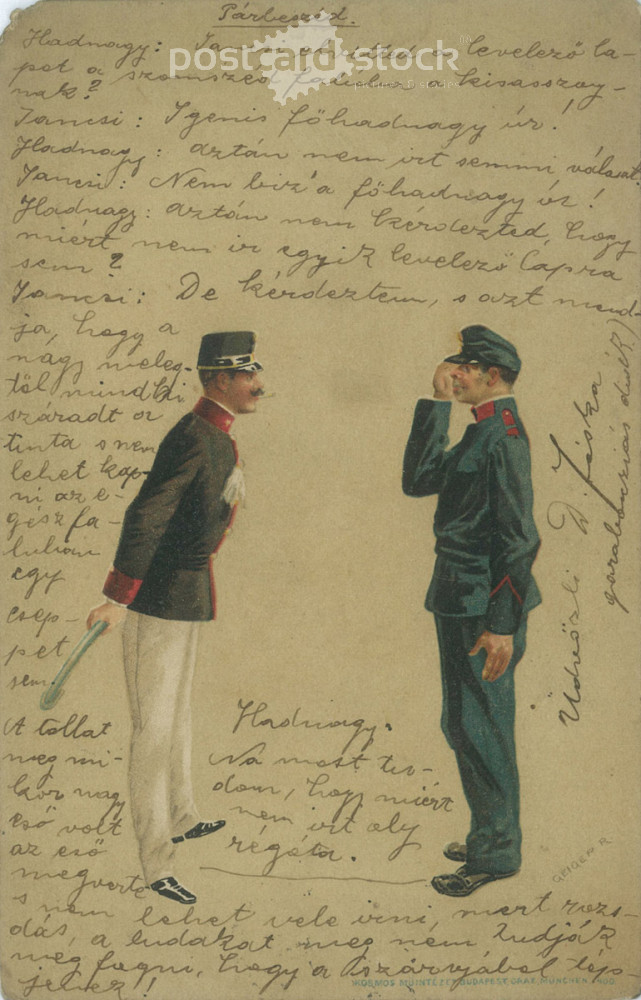 Párbeszéd.
Hadnagy: Jancsi elvitted a levelező la-
pot a szomszéd faluba a kisasszony-
nak?
Jancsi: Igenis főhadnagy úr!
Hadnagy: aztán nem irt semmi választ
Jancsi: Nem biz'a főhadnagy úr!
Hadnagy: aztán nem kérdezted, hogy
miért nem ir egyik levelező lapra
sem?
Jancsi: De kérdeztem, s azt mond-
ja, hogy a
nagy meleg-
től mind ki
száradt a
tinta s nem
lehet kap-
ni az e-
gész fa-
luban
egy
csep-
pet
sem.
A tollat
meg mi-
kor nagy
eső volt
az eső
megverte
s nem lehet vele irni, mert rozs-
dás, a ludakat meg nem tudják
meg fogni, hogy a szárnyából tép-
jenek!
Hadnagy.
Na most tu-
dom, hogy miért
nem irt oly
régóta.
Üdvözli D. Jóska
garabonciás diák.)
GEIGER R.
KOSMOS MŰINTÉZET BUDAPEST GRAZ MÜNCHEN 1900
postcard stock